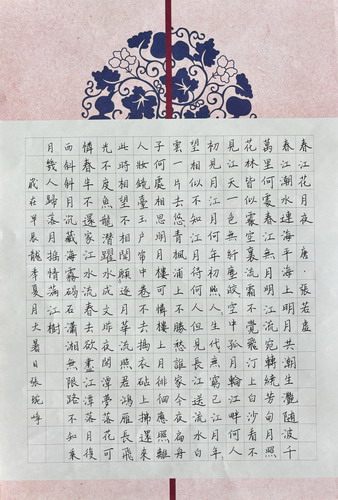 春江花月夜 唐·張若虛
春江潮水連海平海上明月共潮生灩隨波千
萬里何處春江無月明江流宛轉繞芳甸月照
花林皆似霰空裏流霜不覺飛汀上白沙看不
見江天一色無纖塵皎空中孤月輪江畔何人
初見月江月何年初照人生代無窮已江月年
望相似不知江月待何人但見長江送流水白
雲一片去悠青楓浦上不勝愁誰家今夜扁舟
子何處相思明月樓可憐樓上月徘徊應照離
人妝鏡臺玉戶簾中卷不去搗衣砧上拂還來
此時相望不相聞願逐月華流照君鴻雁長飛
光不度魚龍潛躍水成文昨夜閑潭夢落花可
憐春半不還家江水流春去欲盡江潭落月復
西斜斜月沉藏海霧碣石瀟湘無限路不知乘
月幾人歸落月搖情滿江樹
歲在甲辰龍季夏月大暑日張琬崢